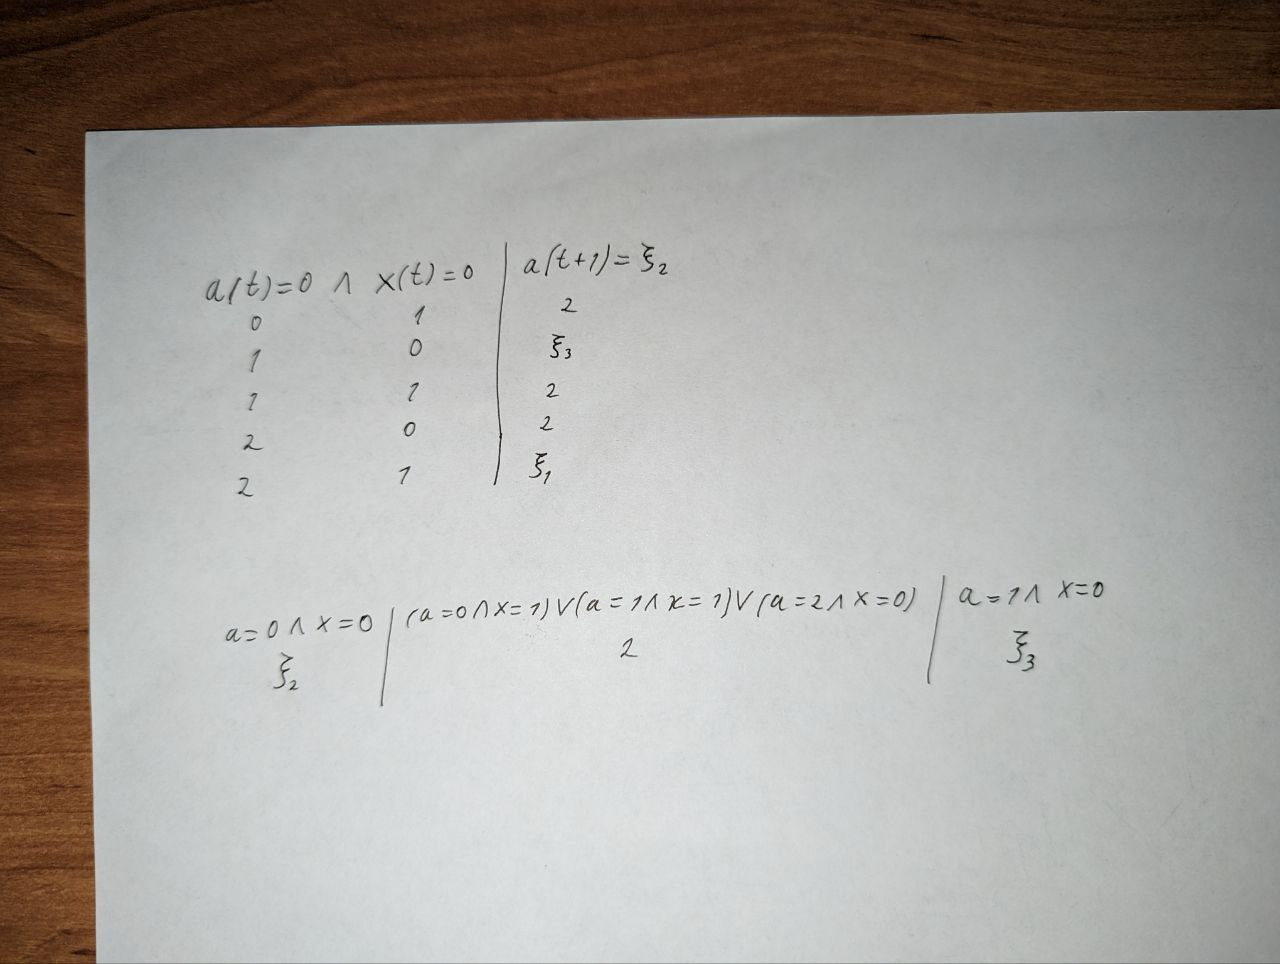 a(t)=0 ∧ x(t)=0 | a(t+1)=ξ₂
0 1 | 2
1 0 | ξ₃
1 1 | 2
2 0 | 2
2 1 | ξ₁
a=0 ∧ x=0 | (a=0∧x=1)∨(a=1∧x=1)∨(a=2∧x=0) | a=1∧ x=0
ξ₂ | 2 | ξ₃